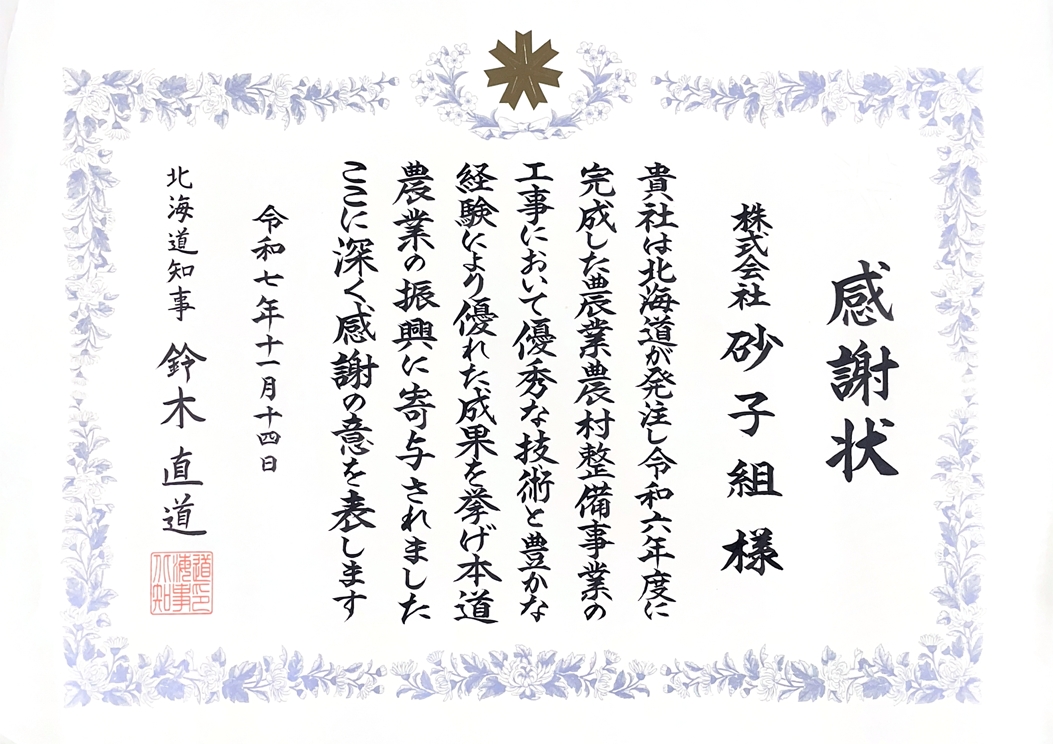 感謝状
株式会社 砂子組 様
貴社は北海道が発注し令和六年度に
完成した農業農村整備事業の
工事において優秀な技術と豊かな
経験により優れた成果を挙げ本道
農業の振興に寄与されました
ここに深く感謝の意を表します
令和七年十一月十四日
北海道知事 鈴木直道
北海道知事印